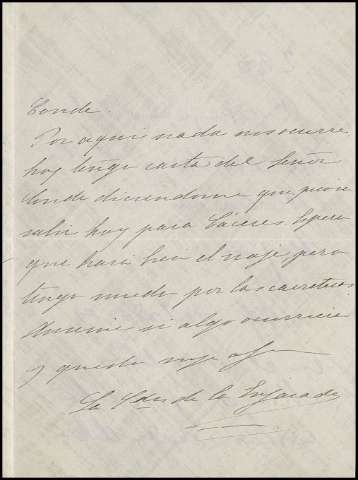 Conde.
Por aqui nada nos ocurre
hoy tengo carta del Señor
Conde diciendome que piensa
salir hoy para Cáceres. Espero
que hará bien el viaje, pero
tengo miedo por las carreteras
si algo ocurriera
y queda suya
La de la